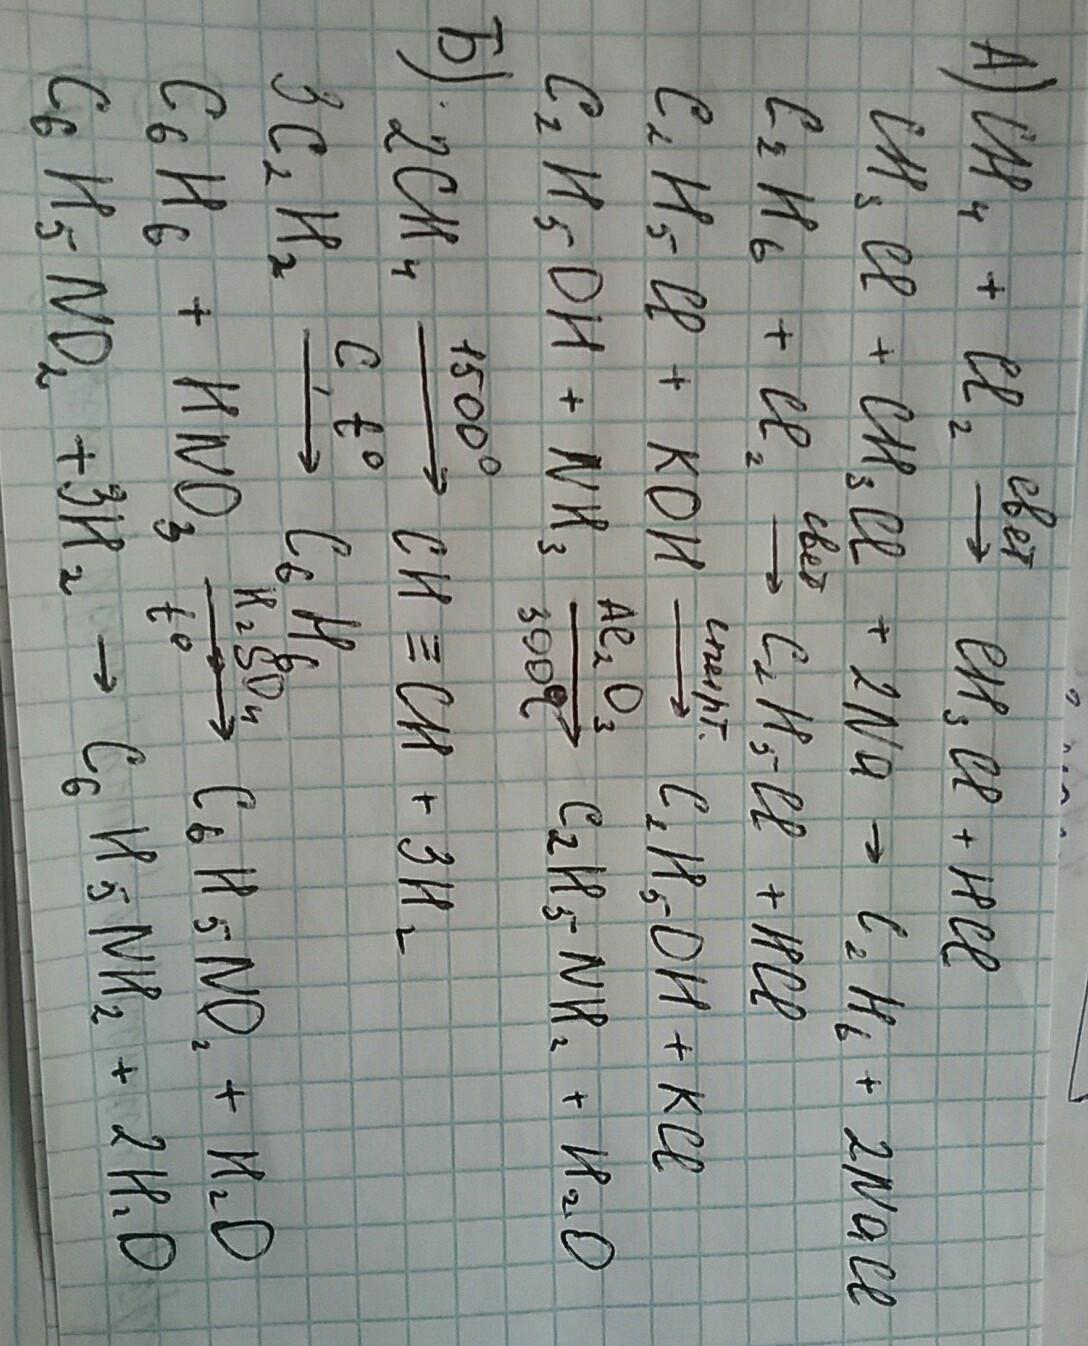 А) CH4 + Cl2 →свет CH3Cl + HCl
CH3Cl + CH3Cl + 2Na → C2H6 + 2NaCl
C2H6 + Cl2 →свет C2H5Cl + HCl
C2H5Cl + KOH →спирт. C2H5OH + KCl
C2H5OH + NH3 →Al2O3 300°C C2H5NH2 + H2O
Б) 2CH4 →1500° CH≡CH + 3H2
3C2H2 →C, t° C6H6
C6H6 + HNO3 →H2SO4 t° C6H5NO2 + H2O
C6H5NO2 + 3H2 → C6H5NH2 + 2H2O